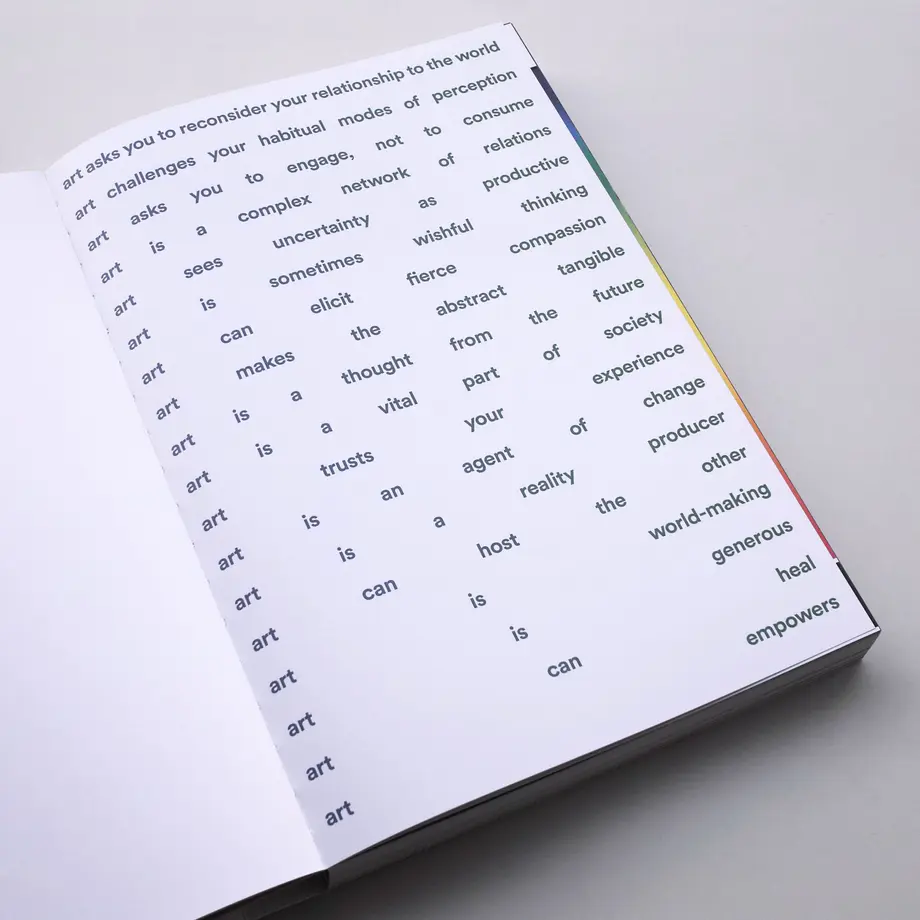 art asks you to reconsider your relationship to the world
art challenges your habitual modes of perception
art asks you to engage, not to consume
art is a complex network of relations
art sees uncertainty as productive
art is sometimes wishful thinking
art can elicit fierce compassion
art makes the abstract tangible
art is a thought from the future
art is a vital part of society
art trusts your experience
art is an agent of change
art is a reality producer
art can host the other
art is world-making
art is generous
art can heal
art empowers